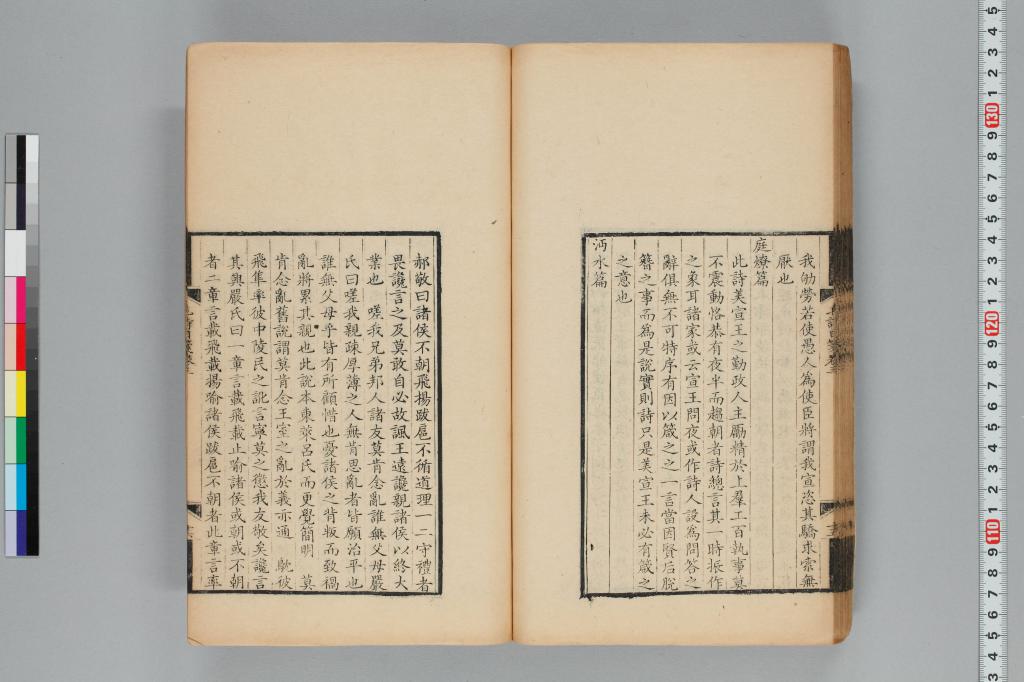 我劬勞若使愚人為使臣將謂我宣恣其驕求索無
厭也
庭燎篇
此詩美宣王之勤政人主勵精於上羣工百執事莫
不震動恪恭有夜半而趨朝者詩總言其一時振作
之象耳諸家或云宣王問夜或作詩人設為問答之
辭俱無不可特序有因以箴之之一言當因賢后脫
簪之事而為是說實則詩只是美宣王未必有箴之
之意也
沔水篇
郝敬曰諸侯不朝飛揚跋扈不循道理一二守禮者
畏讒言之及莫敢自必故諷王遠讒親諸侯以終大
業也 嗟我兄弟邦人諸友莫肯念亂誰無父母嚴
氏曰嗟我親疎厚薄之人無肯思亂者皆願治平也
誰無父母乎皆有所顧惜也憂諸侯之背叛而致禍
亂將累其親也此說本東萊呂氏而更覺簡明 莫
肯念亂舊說謂莫肯念王室之亂於義亦通 鴥彼
飛隼率彼中陵民之訛言寧莫之懲我友敬矣讒言
其興嚴氏曰一章言載飛載止喻諸侯或朝或不朝
者二章言載飛載揚喻諸侯跋扈不朝者此章言率